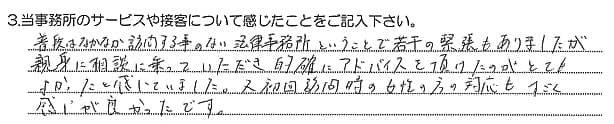 3.当事務所のサービスや接客について感じたことをご記入下さい。
普段はなかなか訪問する事のない法律事務所ということで若干の緊張もありましたが
親身に相談に乗っていただき的確にアドバイスを頂けたのがとても
よかったと感じていました。又初回訪問時の女性の方の対応もすごく
感じが良かったです。